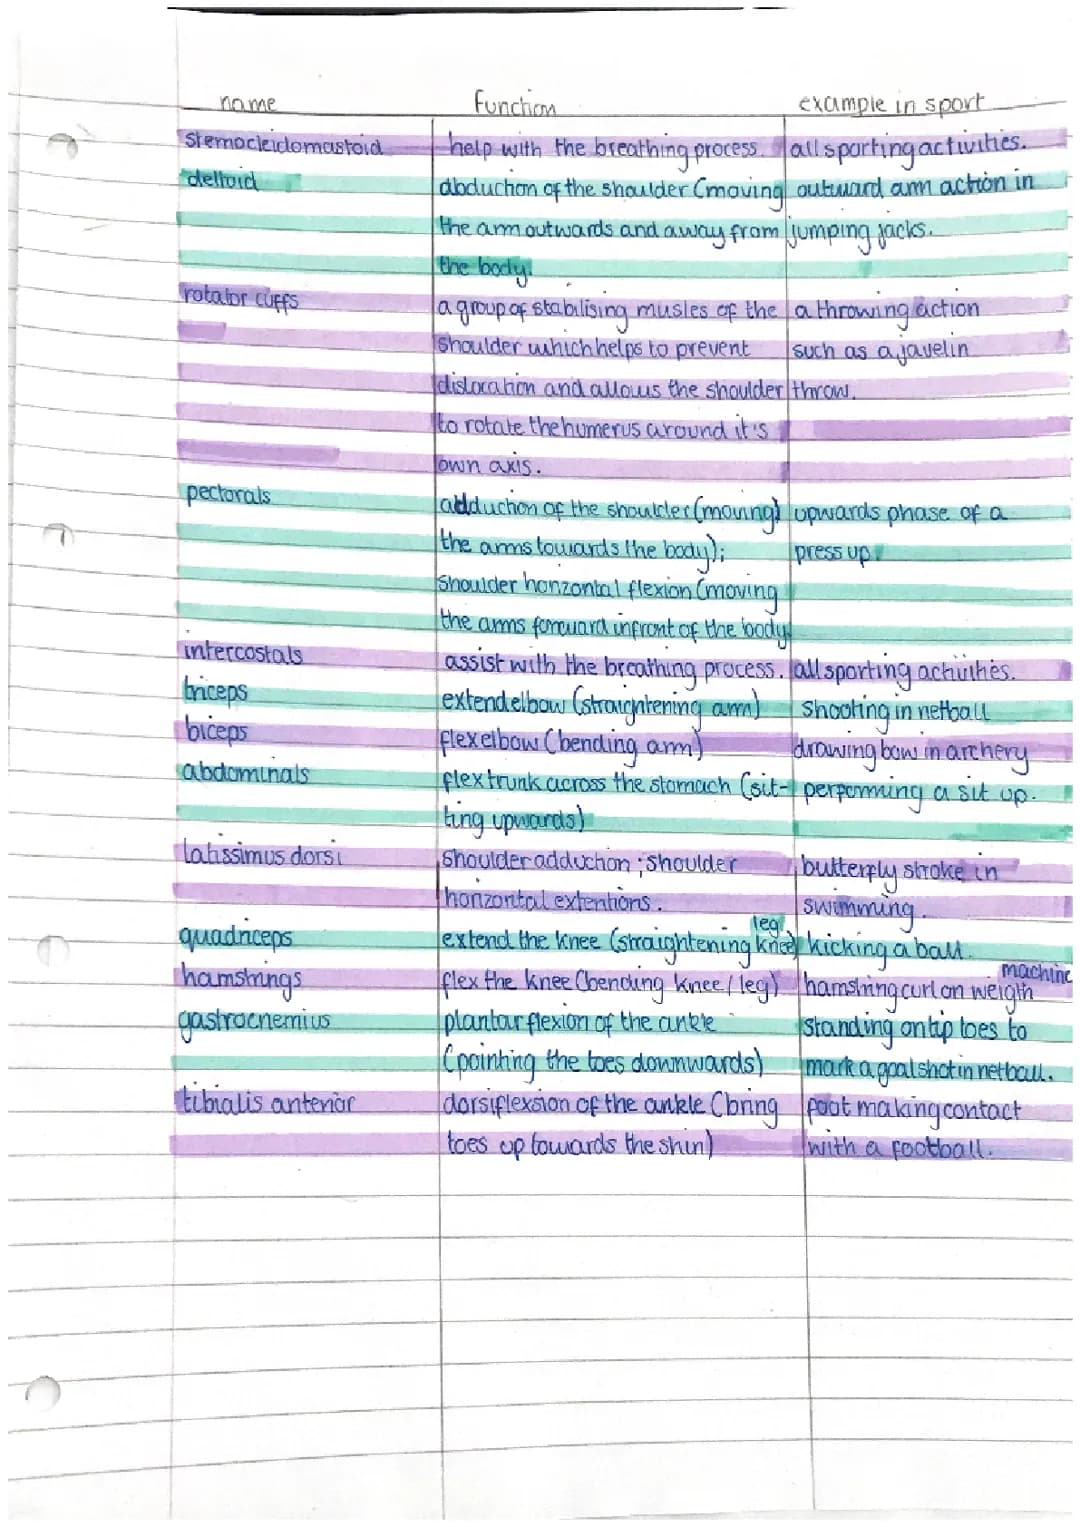 name function example in sport
sternocleidomastoid help with the breathing process. all sporting activities.
deltoid abduction of the shoulder (moving outward arm action in
the arm outwards and away from jumping jacks.
the body.
rotator cuffs a group of stabilising musles of the a throwing action
shoulder which helps to prevent such as a javelin
dislocation and allows the shoulder throw.
to rotate the humerus around it's
own axis.
pectorals adduction of the shoulder (moving) upwards phase of a
the arms towards the body); press up.
shoulder horizontal flexion (moving
the arms forward infront of the body
intercostals assist with the breathing process. all sporting activities.
triceps extend elbow (straightening arm) shooting in netball
biceps flex elbow (bending arm) drawing bow in archery
abdominals flex trunk across the stomach (sit- performing a sit up.
ting upwards)
latissimus dorsi shoulder adduction ; shoulder butterfly stroke in
horizontal extentions. swimming.
leg
quadriceps extend the knee (straightening knee) kicking a ball.
machine
hamstrings flex the knee (bending knee / leg) hamstring curl on weigth
gastrocnemius plantar flexion of the ankle standing on tip toes to
(pointing the toes downwards) mark a goal shot in netball.
tibialis anterior dorsiflexsion of the ankle (bring foot making contact
toes up towards the shin) with a football.